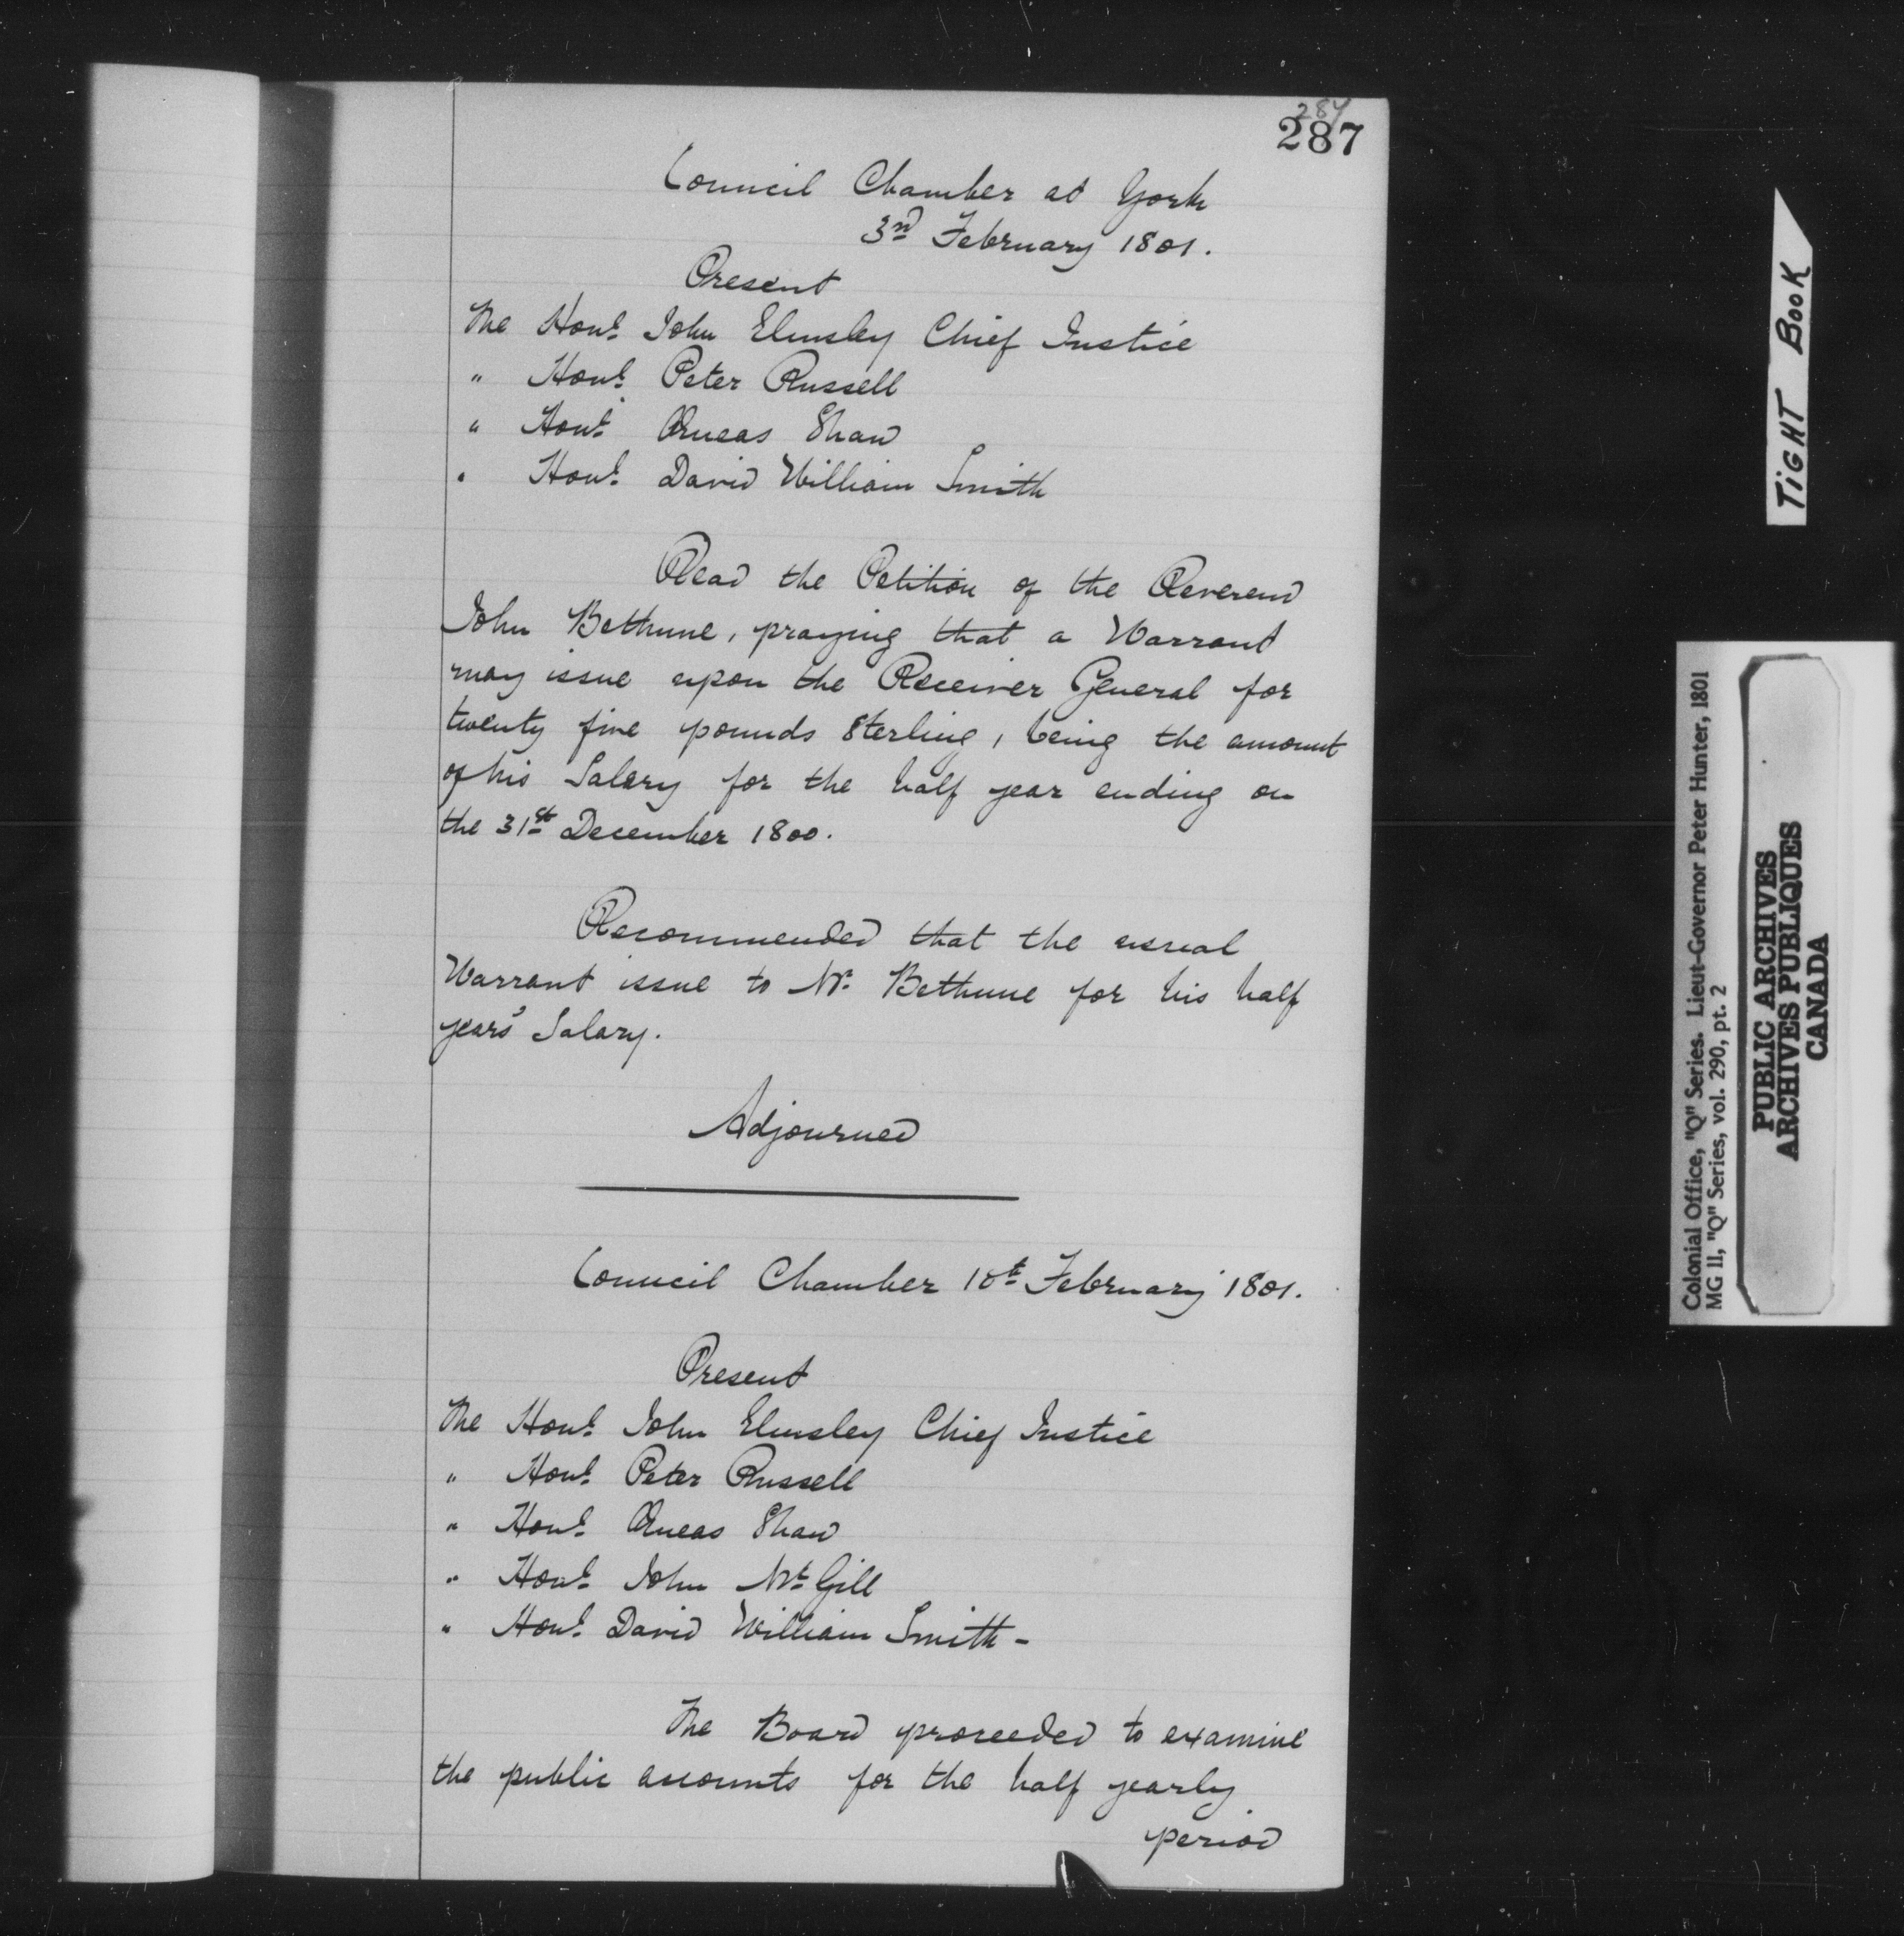 287
287
Council Chamber at York
3rd February 1801.
Present
The Honl. John Elmsley Chief Justice
" Honl. Peter Russell
" Honl. Æneas Shaw
" Honl. David William Smith
Read the Petition of the Reverend
John Bethune, praying that a Warrant
may issue upon the Receiver General for
twenty five pounds Sterling, being the amount
of his Salary for the half year ending on
the 31st December 1800.
Recommended that the usual
Warrant issue to Mr. Bethune for his half
years' Salary.
Adjourned
Council Chamber 10th February 1801.
Present
The Honl. John Elmsley Chief Justice
" Honl. Peter Russell
" Honl. Æneas Shaw
" Honl. John McGill
" Honl. David William Smith -
The Board proceeded to examine
the public accounts for the half yearly
period
TiGHT BooK
Colonial Office, "Q" Series. Lieut-Governor Peter Hunter, 1801
MG 11, "Q" Series, vol. 290, pt. 2
PUBLIC ARCHIVES
ARCHIVES PUBLIQUES
CANADA